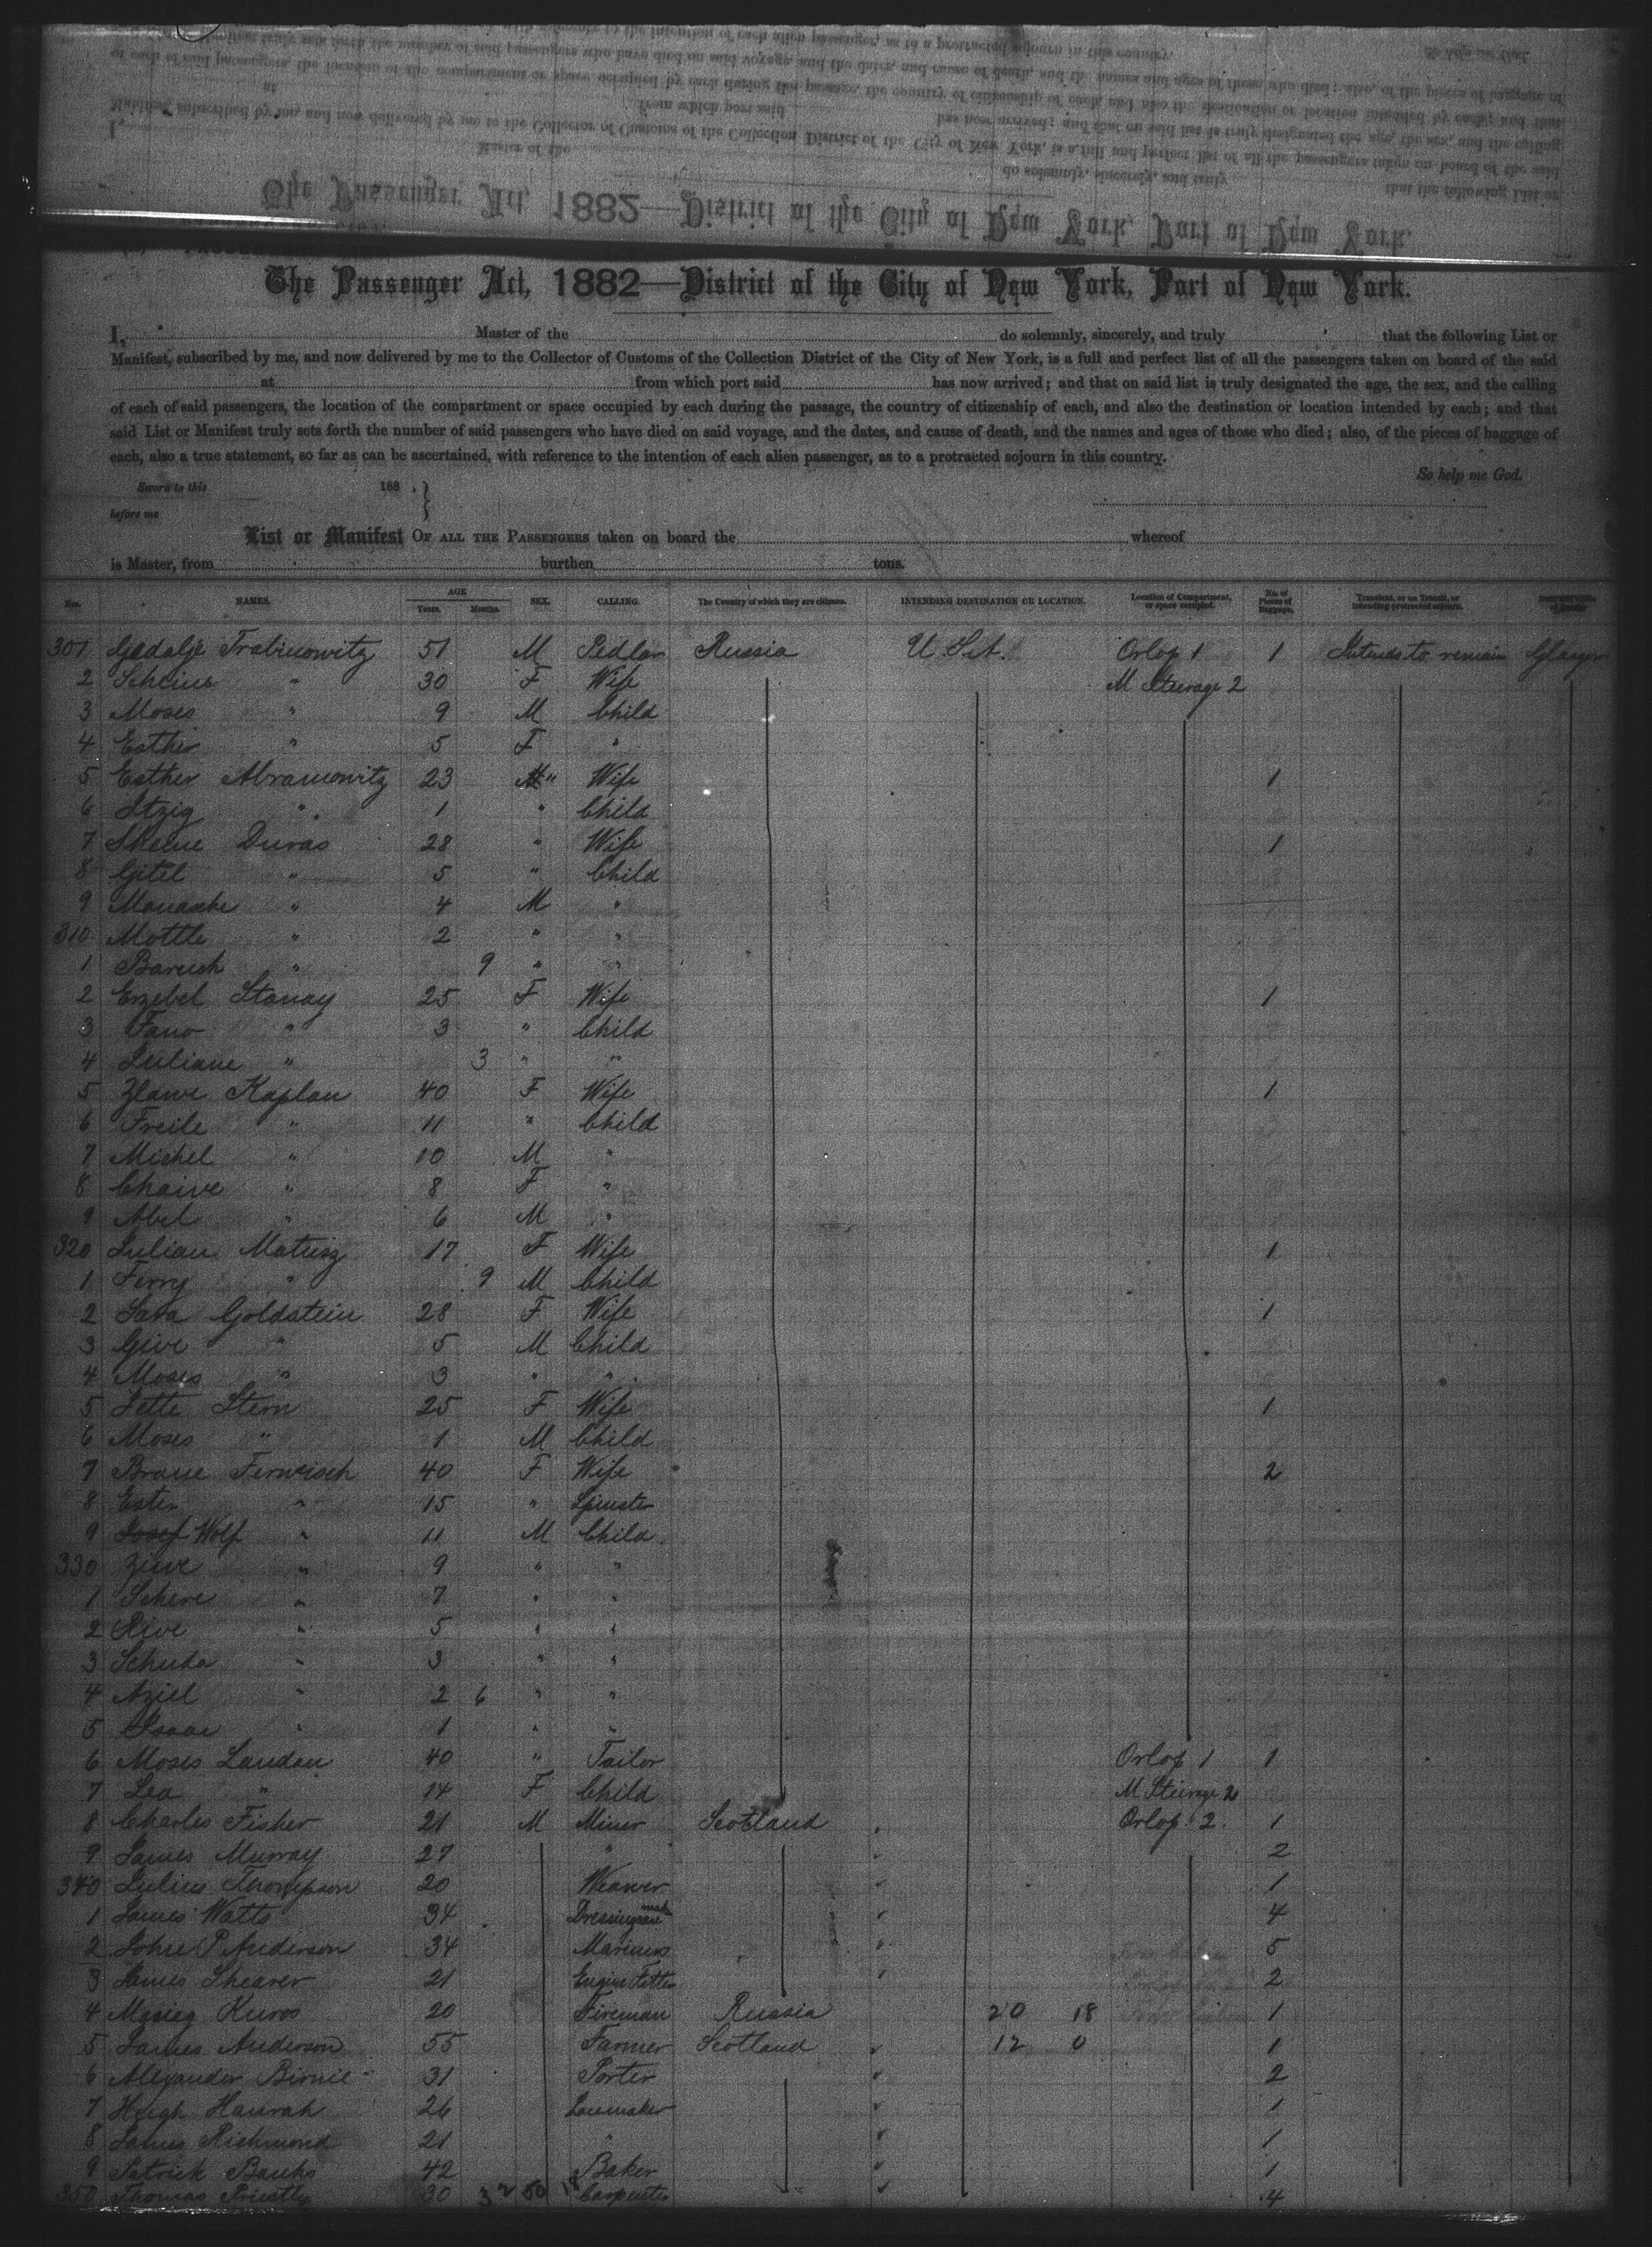 The Passenger Act, 1882—District of the City of New York, Port of New York.
I, Master of the do solemnly, sincerely, and truly that the following List or
Manifest, subscribed by me, and now delivered by me to the Collector of Customs of the Collection District of the City of New York, is a full and perfect list of all the passengers taken on board of the said
at from which port said has now arrived; and that on said list is truly designated the age, the sex, and the calling
of each of said passengers, the location of the compartment or space occupied by each during the passage, the country of citizenship of each, and also the destination or location intended by each; and that
said List or Manifest truly sets forth the number of said passengers who have died on said voyage, and the dates, and cause of death, and the names and ages of those who died; also, of the pieces of baggage of
each, also a true statement, so far as can be ascertained, with reference to the intention of each alien passenger, as to a protracted sojourn in this country.
So help me God.
Sworn to this 188 .
before me
List or Manifest OF ALL THE PASSENGERS taken on board the whereof
is Master, from burthen tons.
Nos. NAMES. AGE Years. Months. SEX. CALLING. The Country of which they are citizens. INTENDING DESTINATION OR LOCATION. Location of Compartment, or space occupied. No. of Pieces of Baggage. Transient, or on Transit, or intending protracted sojourn.
301 Gedalje Trabinowitz 51 M Pedlar Russia U. S. A. Orlop 1 1 Intends to remain Glasgow
2 Scheine " 30 F Wife M Steerage 2
3 Moses " 9 M Child
4 Esther " 5 F "
5 Esther Abramowitz 23 " Wife 1
6 Itzig " 1 " Child
7 Skeine Duras 28 " Wife 1
8 Gitel " 5 " Child
9 Manashe " 4 M "
310 Mottle " 2 " "
1 Baruch " 9 " "
2 Erzebel Stanay 25 F Wife 1
3 Fano " 3 " Child
4 Juliane " 3 " "
5 Zlawe Kaplan 40 F Wife 1
6 Freile " 11 " Child
7 Michel " 10 M "
8 Chaive " 8 F "
9 Abel " 6 M "
320 Julian Matusz 17 F Wife 1
1 Ferry " 9 M Child
2 Sara Goldstein 28 F Wife 1
3 Give " 5 M Child
4 Moses " 3 " "
5 Jette Stern 25 F Wife 1
6 Moses " 1 M Child
7 Brane Ferwisch 40 F Wife 2
8 Ester " 15 " Spinster
9 Josef Wolf " 11 M Child
330 Zive " 9 " "
1 Schere " 7 " "
2 Rive " 5 " "
3 Schuda " 3 " "
4 Aziel " 2 6 " "
5 Isaac " 1 " "
6 Moses Landau 40 " Tailor Orlop 1 1
7 Lea " 14 F Child M Steerage 2
8 Charles Fisher 21 M Miner Scotland Orlop 2. 1
9 James Murray 27 " 2
340 Julius Thompson 20 Weaver 1
1 James Watts 34 4
2 John P. Anderson 34 Mariner 5
3 James Shearer 21 Engine Fitter 2
4 Kuros 20 Fireman Russia 20 18 1
5 James Anderson 55 Farmer Scotland 12 0 1
6 Alexander Birnie 31 Porter 2
7 Hugh Hannah 26 Lacemaker 1
8 James Richmond 21 " 1
9 Patrick Banks 42 Baker 1
350 Thomas Priestly 30 Carpenter 4